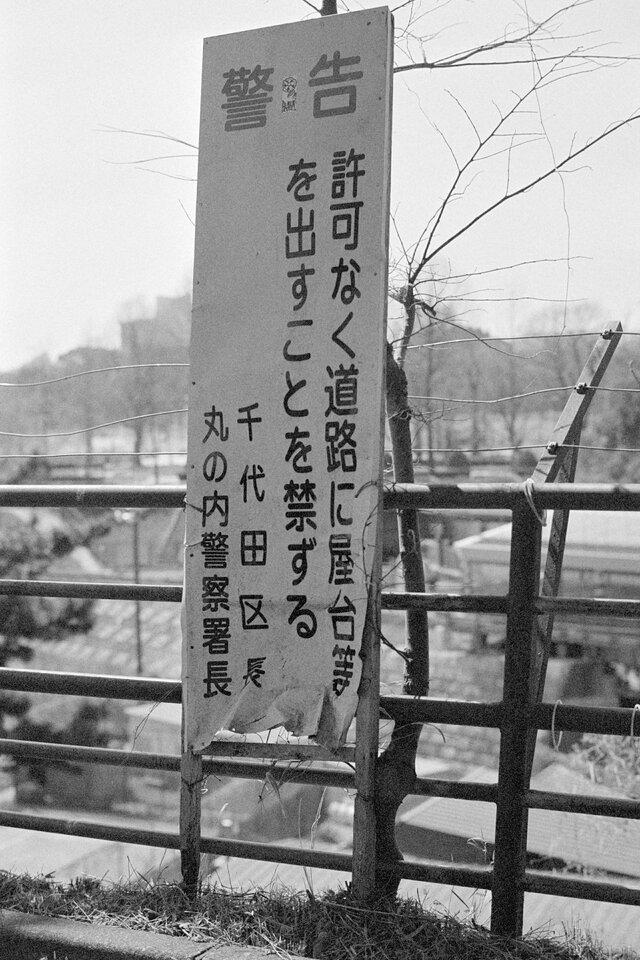 警告
許可なく道路に屋台等
を出すことを禁ずる
千代田区長
丸の内警察署長